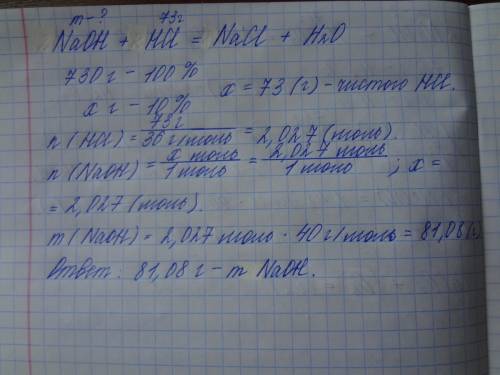 m-? 73г
NaOH + HCl = NaCl + H₂O
730 г - 100 %
x г - 10 % x = 73 (г) - чистого HCl.
n (HCl) = 73г / 36 г/моль = 2,027 (моль).
n (NaOH) = x моль / 1 моль = 2,027 моль / 1 моль ; x =
= 2,027 (моль).
m (NaOH) = 2,027 моль · 40 г/моль = 81,08 (г)
Ответ: 81,08 г - m NaOH.